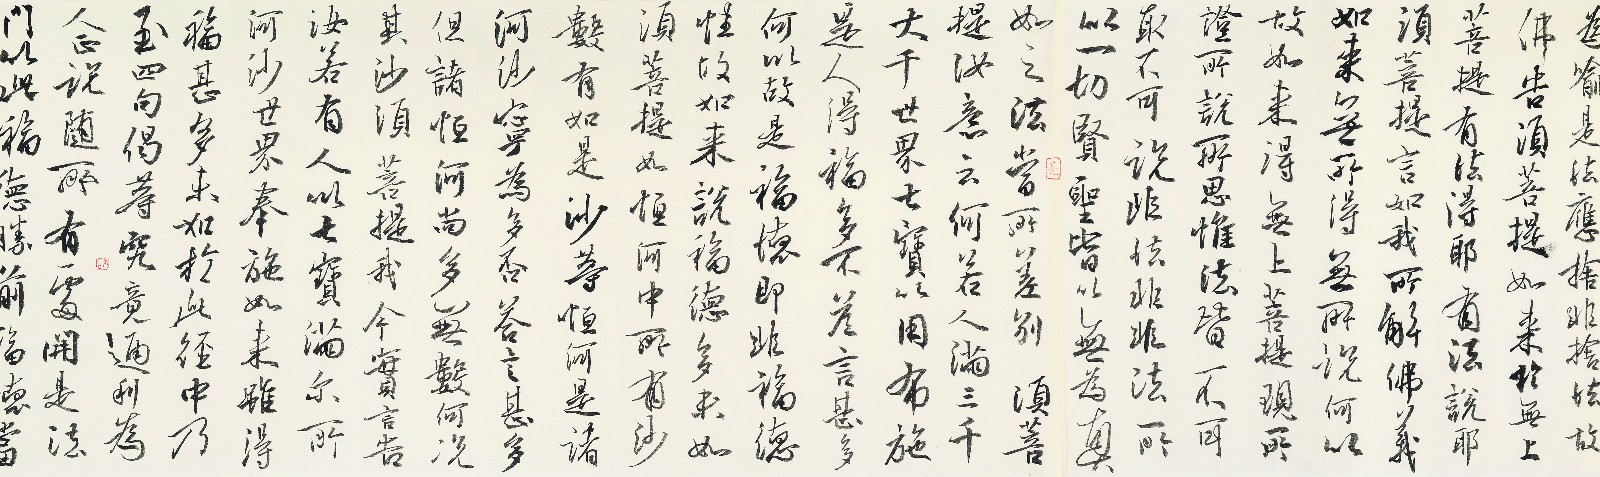 為喻是法應捨非捨法故
佛告須菩提如来於無上
菩提有法得耶有法說耶
須菩提言如我所解佛義
如来無所得無所說何以
故如来得無上菩提現所
證所說所思惟法皆不可
取不可說非法非非法所
以一切賢聖皆以無為真
如之法當所差別 須菩
提汝意云何若人滿三千
大千世界七寶以用布施
是人得福多不答言甚多
何以故是福德即非福德
性故如来說福德多来如
須菩提如恒河中所有沙
數有如是沙等恒河是諸
河沙寧為多否答言甚多
但諸恒河尚多無數何况
其沙須菩提我今實言告
汝若有人以七寶滿尔所
河沙世界奉施如来雖得
福甚多未如於此經中乃
至四句偈等究竟通利為
人正說随所有處開是法
門以此福德勝前福德當